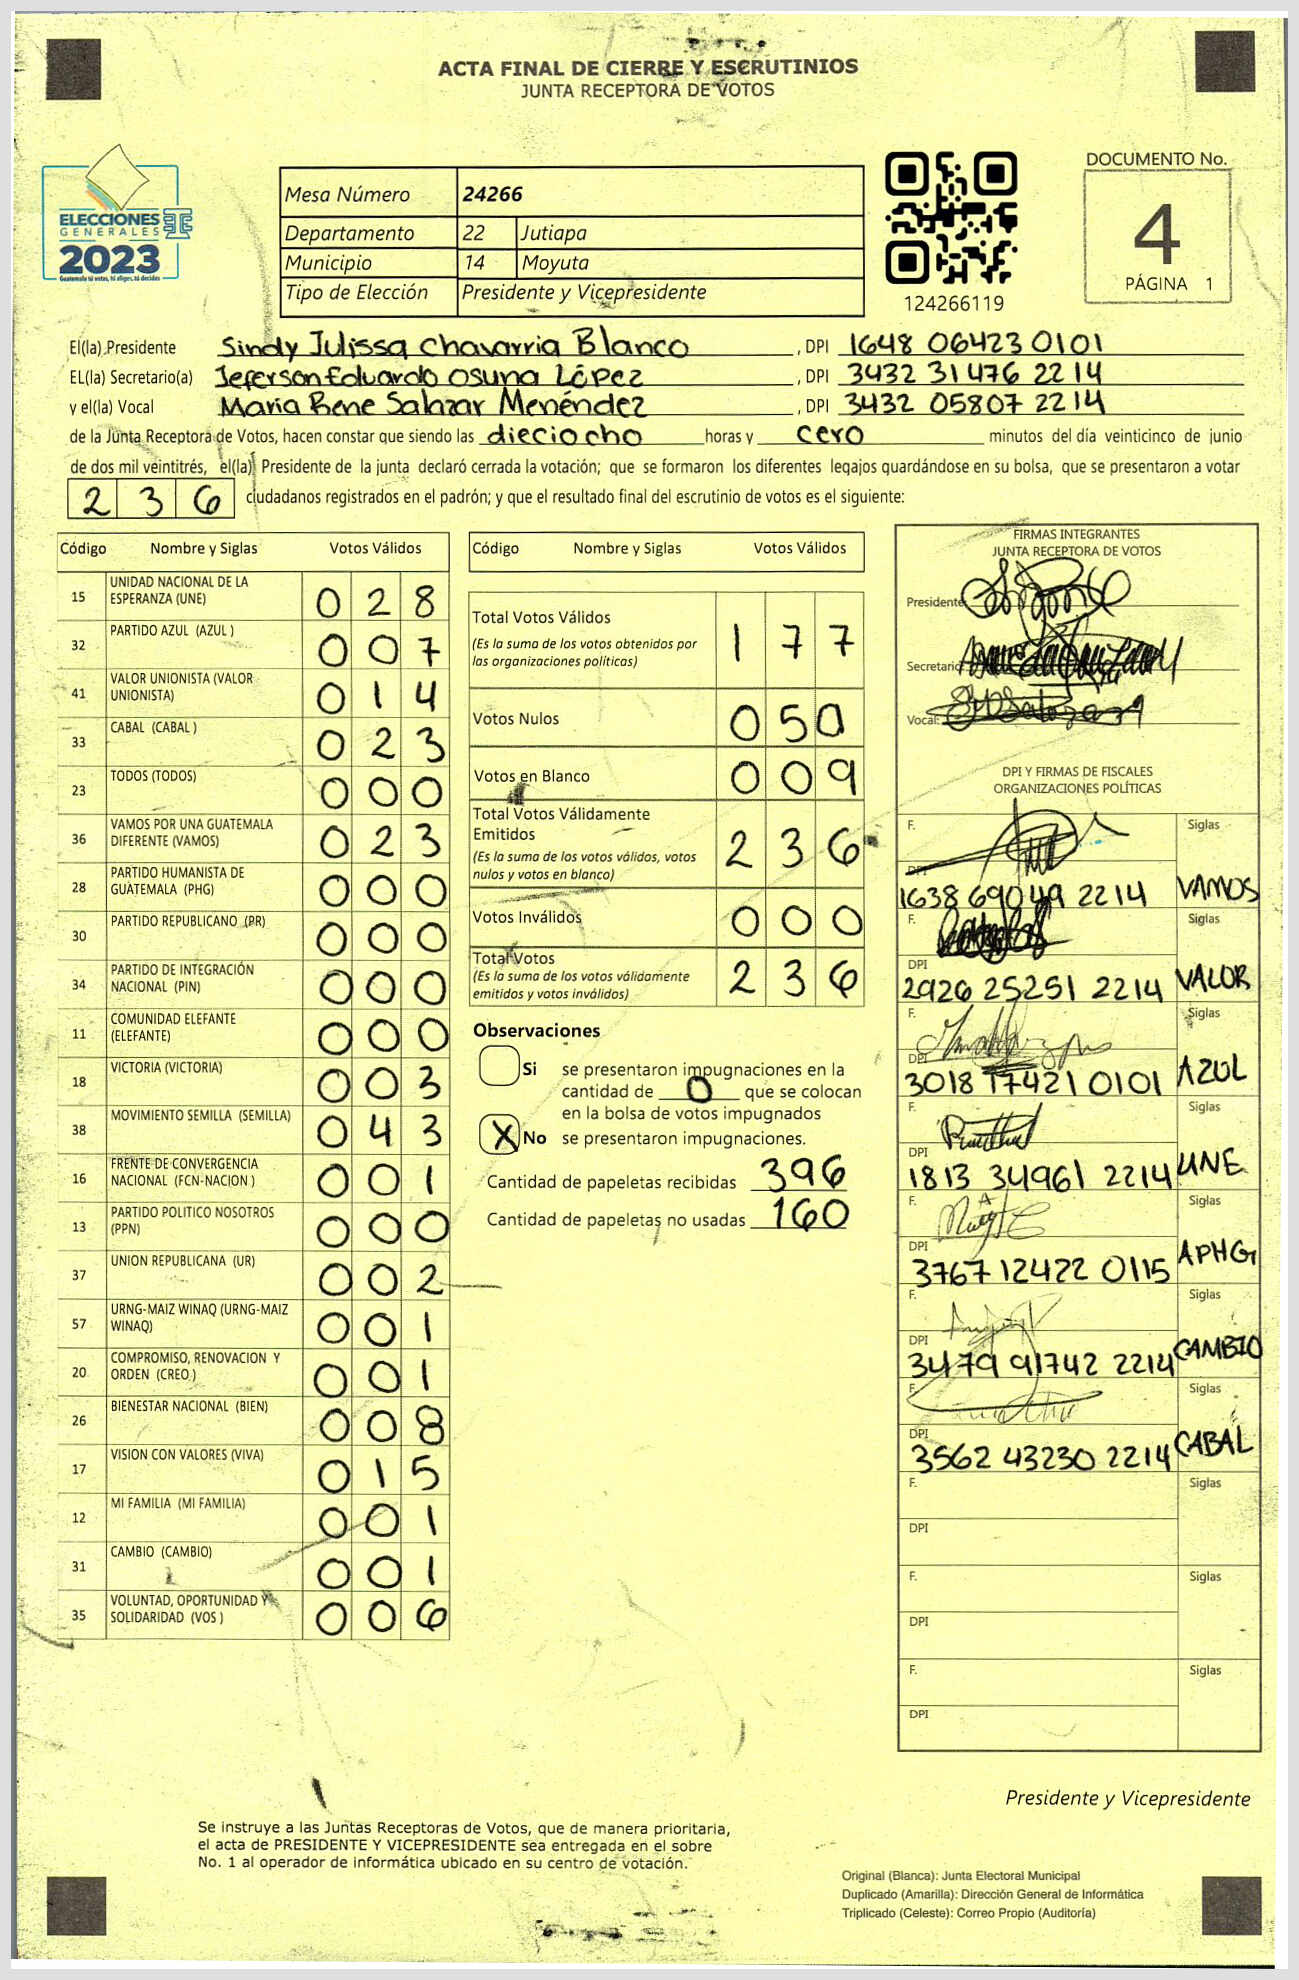 ACTA FINAL DE CIERRE Y ESCRUTINIOS
JUNTA RECEPTORA DE VOTOS
ELECCIONES
GENERALES
2023
Guatemala tú votas, tú eliges, tú decides
Mesa Número 24266
Departamento 22 Jutiapa
Municipio 14 Moyuta
Tipo de Elección Presidente y Vicepresidente
124266119
DOCUMENTO No.
4
PÁGINA 1
El(la) Presidente Sindy Julissa Chavarria Blanco , DPI 1648 06423 0101
EL(la) Secretario(a) Jeferson Eduardo Osuna López , DPI 3432 31476 2214
y el(la) Vocal Maria Rene Salazar Menéndez , DPI 3432 05807 2214
de la Junta Receptora de Votos, hacen constar que siendo las dieciocho horas y cero minutos del día veinticinco de junio
de dos mil veintitrés, el(la) Presidente de la junta declaró cerrada la votación; que se formaron los diferentes legajos guardándose en su bolsa, que se presentaron a votar
236 ciudadanos registrados en el padrón; y que el resultado final del escrutinio de votos es el siguiente:
Código Nombre y Siglas Votos Válidos
15 UNIDAD NACIONAL DE LA ESPERANZA (UNE) 028
32 PARTIDO AZUL (AZUL ) 007
41 VALOR UNIONISTA (VALOR UNIONISTA) 014
33 CABAL (CABAL ) 023
23 TODOS (TODOS) 000
36 VAMOS POR UNA GUATEMALA DIFERENTE (VAMOS) 023
28 PARTIDO HUMANISTA DE GUATEMALA (PHG) 000
30 PARTIDO REPUBLICANO (PR) 000
34 PARTIDO DE INTEGRACIÓN NACIONAL (PIN) 000
11 COMUNIDAD ELEFANTE (ELEFANTE) 000
18 VICTORIA (VICTORIA) 003
38 MOVIMIENTO SEMILLA (SEMILLA) 043
16 FRENTE DE CONVERGENCIA NACIONAL (FCN-NACION ) 001
13 PARTIDO POLITICO NOSOTROS (PPN) 000
37 UNION REPUBLICANA (UR) 002
57 URNG-MAIZ WINAQ (URNG-MAIZ WINAQ) 001
20 COMPROMISO, RENOVACION Y ORDEN (CREO ) 001
26 BIENESTAR NACIONAL (BIEN) 008
17 VISION CON VALORES (VIVA) 015
12 MI FAMILIA (MI FAMILIA) 001
31 CAMBIO (CAMBIO) 001
35 VOLUNTAD, OPORTUNIDAD Y SOLIDARIDAD (VOS ) 006
Código Nombre y Siglas Votos Válidos
Total Votos Válidos 177
(Es la suma de los votos obtenidos por
las organizaciones políticas)
Votos Nulos 050
Votos en Blanco 009
Total Votos Válidamente
Emitidos 236
(Es la suma de los votos válidos, votos
nulos y votos en blanco)
Votos Inválidos 000
Total Votos 236
(Es la suma de los votos válidamente
emitidos y votos inválidos)
Observaciones
Si se presentaron impugnaciones en la
cantidad de 0 que se colocan
en la bolsa de votos impugnados
X No se presentaron impugnaciones.
Cantidad de papeletas recibidas 396
Cantidad de papeletas no usadas 160
FIRMAS INTEGRANTES
JUNTA RECEPTORA DE VOTOS
Presidente:
Secretario:
Vocal:
DPI Y FIRMAS DE FISCALES
ORGANIZACIONES POLÍTICAS
F. Siglas
DPI 1638 69049 2214 VAMOS
F. Siglas
DPI 2926 25251 2214 VALOR
F. Siglas
DPI 3018 17421 0101 AZUL
F. Siglas
DPI 1813 34961 2214 UNE
F. Siglas
DPI 3767 12422 0115 APHG
F. Siglas
DPI 3479 91742 2214 CAMBIO
F. Siglas
DPI 3562 43230 2214 CABAL
F. Siglas
DPI
F. Siglas
DPI
F. Siglas
DPI
Presidente y Vicepresidente
Se instruye a las Juntas Receptoras de Votos, que de manera prioritaria,
el acta de PRESIDENTE Y VICEPRESIDENTE sea entregada en el sobre
No. 1 al operador de informática ubicado en su centro de votación.
Original (Blanca): Junta Electoral Municipal
Duplicado (Amarilla): Dirección General de Informática
Triplicado (Celeste): Correo Propio (Auditoría)